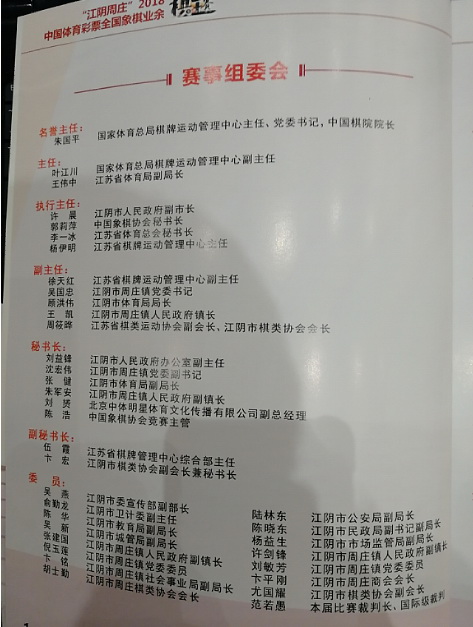 “江阴周庄”2018
中国体育彩票全国象棋业余棋王
赛事组委会
名誉主任：
朱国平 国家体育总局棋牌运动管理中心主任、党委书记，中国棋院院长
主任：
叶江川 国家体育总局棋牌运动管理中心副主任
王伟中 江苏省体育局副局长
执行主任：
许 晨 江阴市人民政府副市长
郭莉萍 中国象棋协会秘书长
李一冰 江苏省体育总会秘书长
杨伊明 江苏省棋牌运动管理中心主任
副主任：
徐天红 江苏省棋牌运动管理中心副主任
吴国忠 江阴市周庄镇党委书记
顾洪伟 江阴市体育局局长
王 凯 江阴市周庄镇人民政府镇长
周筱晔 江苏省棋类运动协会副会长、江阴市棋类协会会长
秘书长：
刘益锋 江阴市人民政府办公室副主任
沈宏伟 江阴市周庄镇党委副书记
张 健 江阴市体育局副局长
朱军安 江阴市周庄镇人民政府副镇长
刘 赟 北京中体明星体育文化传播有限公司副总经理
陈 浩 中国象棋协会竞赛主管
副秘书长：
伍 霞 江苏省棋牌管理中心综合部主任
卞 宏 江阴市棋类协会副会长兼秘书长
委 员：
吴 燕 江阴市委宣传部副部长
俞勤龙 江阴市卫计委副主任
陈 华 江阴市教育局副局长
吴 新 江阴市城管局副局长
张建国 江阴市周庄镇人民政府副镇长
倪玉莲 江阴市周庄镇党委委员
卞 铭 江阴市周庄镇社会事业局副局长
胡士勤 江阴市周庄棋类协会会长
陆林东 江阴市公安局副局长
陈晓东 江阴市民政局副书记副局长
杨益生 江阴市市场监管局副局长
许剑锋 江阴市周庄镇人民政府副镇长
刘敏芳 江阴市周庄镇党委委员
卞平刚 江阴市周庄商会会长
尤国耀 江阴市棋类协会副会长
范若愚 本届比赛裁判长、国际级裁判